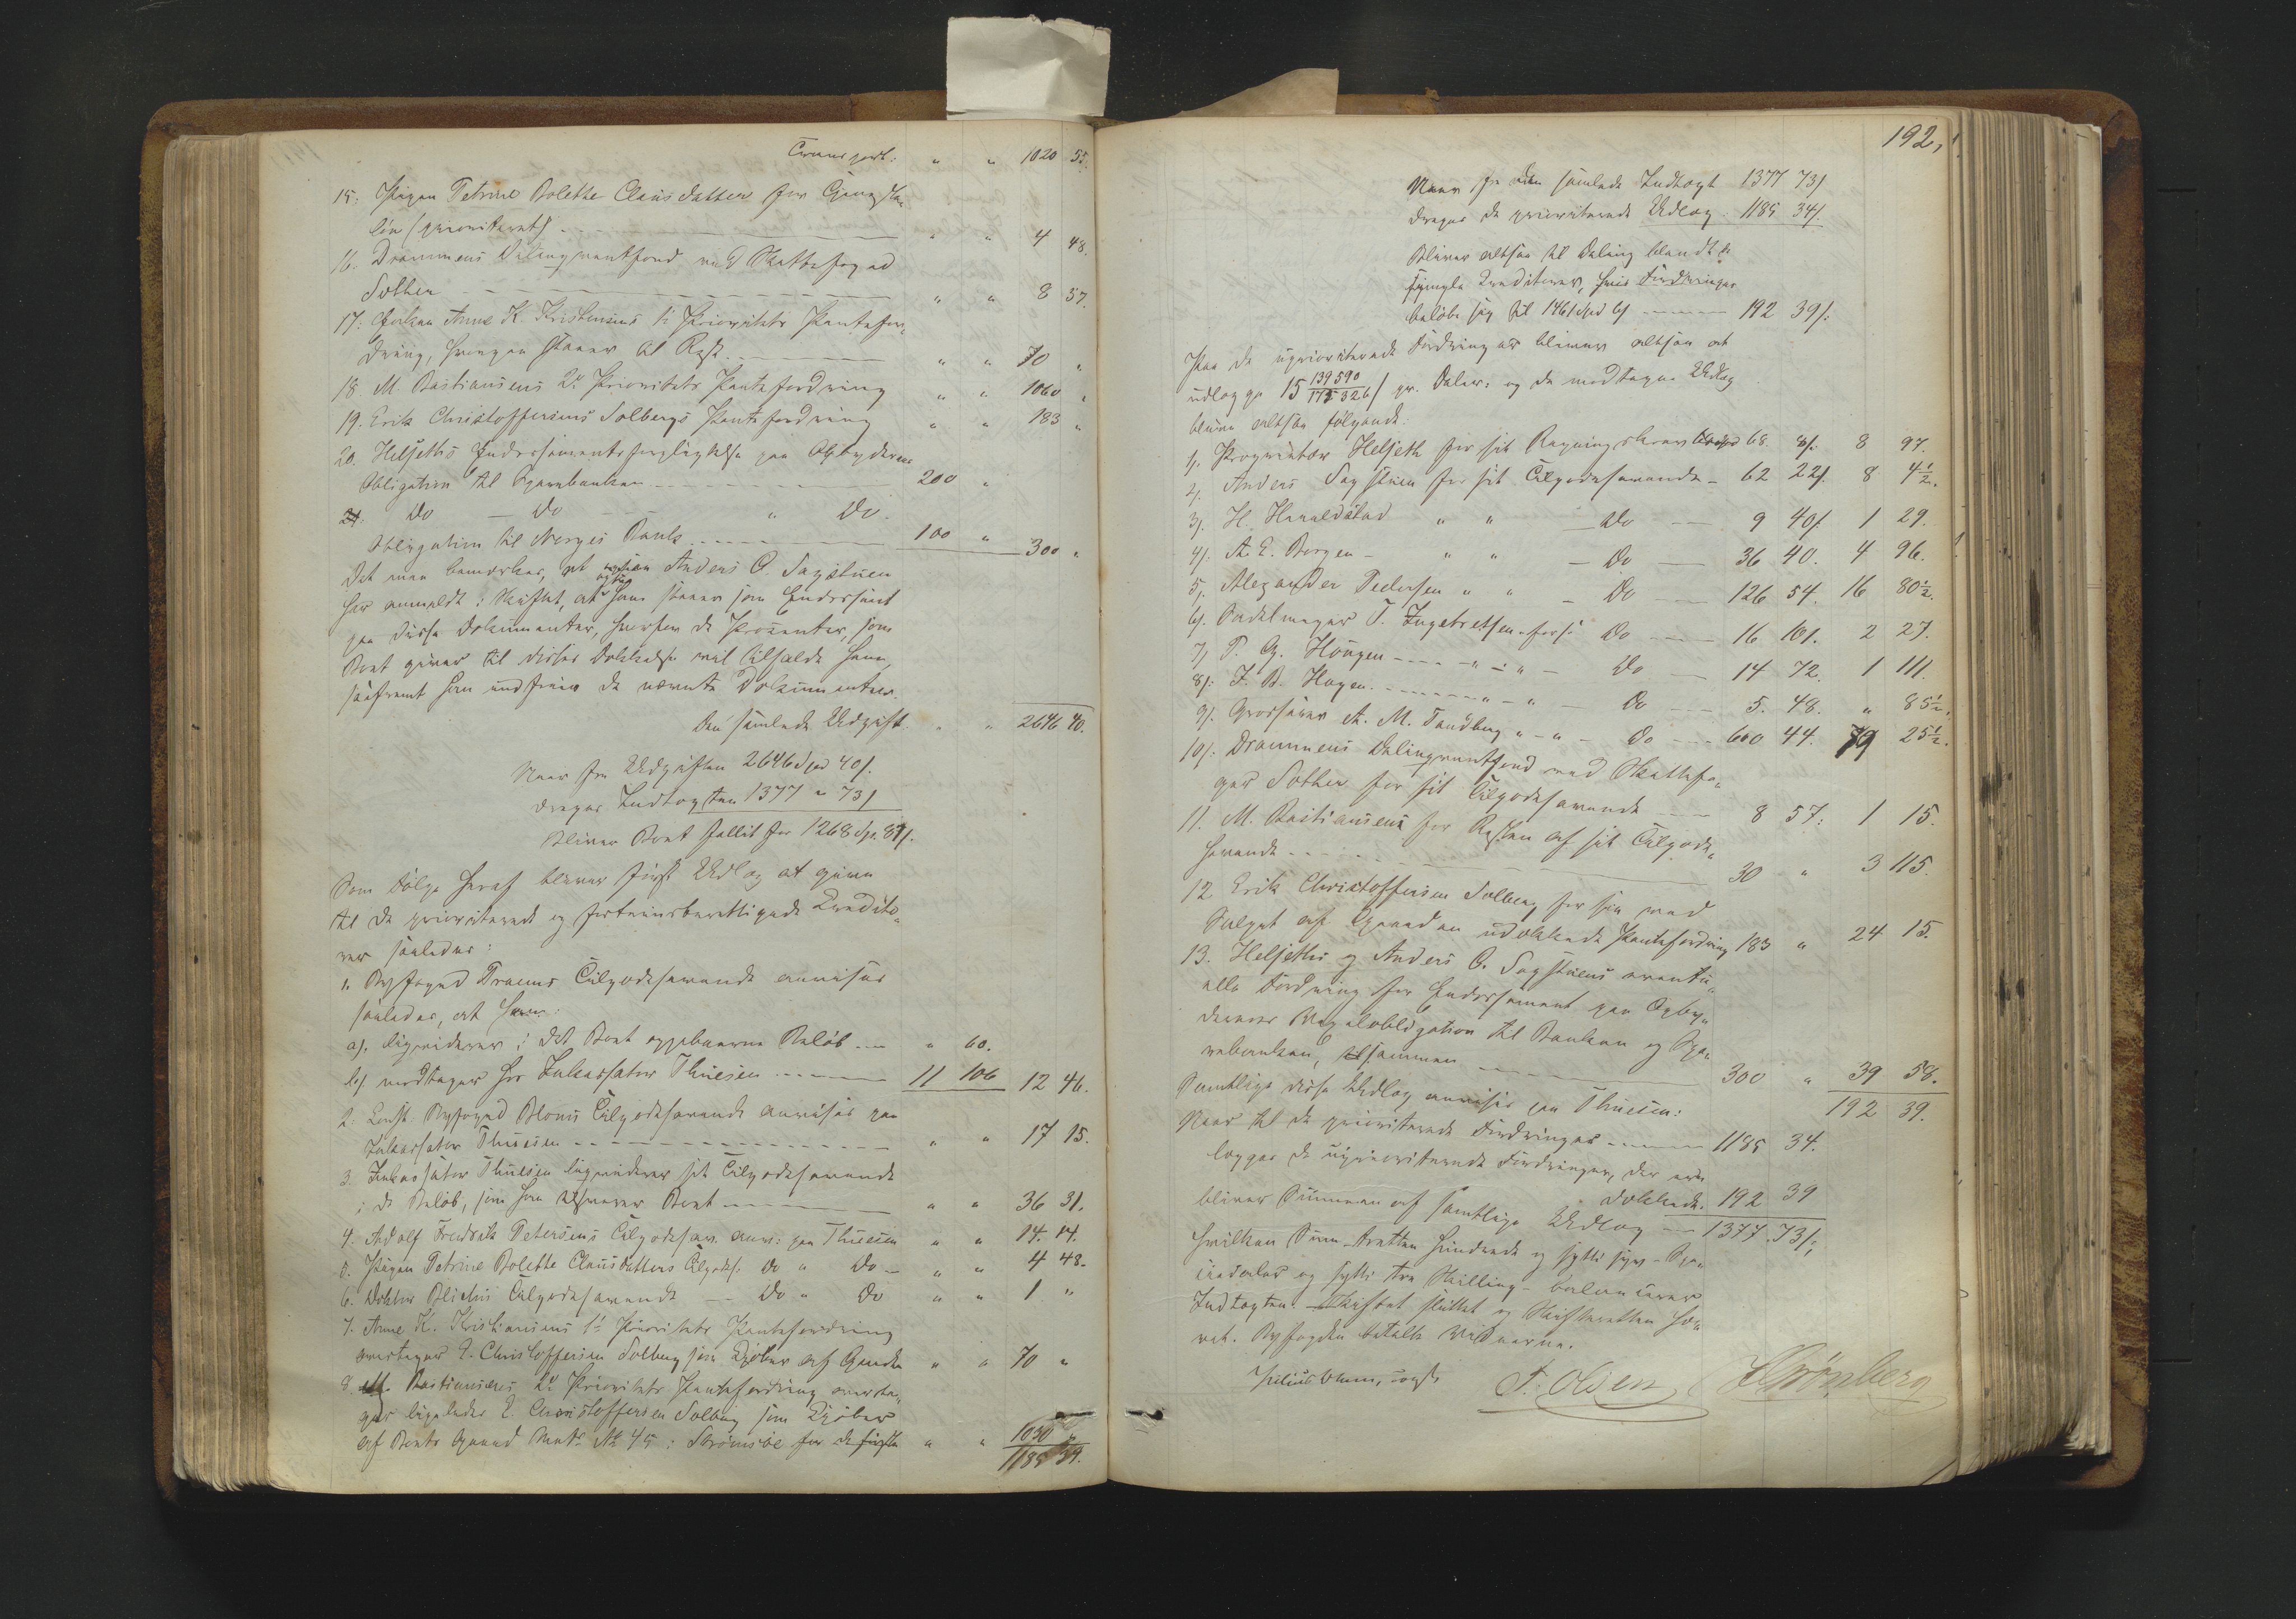 Transport: " " 1020 55.
15: Pigen Petrine Bolethe Claus datter for Tjeneste
løn (prioriteret) " " 4 48.
16. Drammens Delingsrentefond ved Skattefoged
Sother " " 8 57.
17: Enken Anne K. Kristensens 1ste Prioritets Pantefor¬
dring, hvorpaa staaer til Rest " " 70 "
18 M. Bastiansens 2den Prioritets Pantefordring " " 1060 "
19. Erik Christoffersens Solbergs Pantefordring " " 183 "
20. Helseths Endossementsforpligtelse paa Opbyderens
Obligation til Sparebanken 200 "
21. Do — Do " Do.
Obligation til Norges Bank 100 " 300 "
Det maa bemærkes, at ogsaa Anders O. Sagstuen
har anmeldt i Skiftet, at han staaer som Endossent
paa disse Dokumenter, hvorfor de Procenter, som
Boet giver til disses Dækkelse vil tilfalde ham,
saafremt han indfrier de nævnte Dokumenter.
Den samlede Udgift " " 2646 40.
Naar fra Udgiften 2646 Spd 40 s.
drages Indtægten 1377 " 73 s
bliver Boet fallit for 1268 Spd. 87 s.
Som Følge heraf bliver først Udlæg at give
til de prioriterede og fortrinsberettigede Kredito¬
rer saaledes:
1. Byfoged Trams Tilgodehavende anvises
saaledes, at han:
a). liqviderer i det Boet oppebaarne Beløb " 60.
b) modtager hos Inkassator Thuesen 11 106 12 46.
2: Const. Byfoged Bloms Tilgodehavende anvises paa
Inkassator Thuesen " " 17 15.
3. Inkassator Thuesen liqviderer sit Tilgodehavende
i de Beløb, som han tilsvarer Boet " " 36 31.
4. Adolf Fredrik Petersens Tilgodehav. anv: paa Thuesen " " 14. 14.
5. Pigen Petrine Bolethe Clausdatters Tilgodeh: Do " Do — " " 4 48.
6. Doktor Blichs Tilgodehavende — Do " Do " " 1 "
7. Anne K. Kristiansens 1ste Prioritets Pantefordring
overtager E. Christoffersen Solberg som Kjøber af Gaarden " " 70 "
8. M. Bastiansens 2den Prioritets Pantefordring overta¬
ger ligeledes E. Christoffersen Solberg som Kjøber
af Boets Gaard Matr. No 45 i Strømsøe for de første " " 1030 "
1185 34.
192,
Naar fra den samlede Indtægt 1377 73 s
drages de prioriterede Udlæg 1185 34 s.
Bliver altsaa til Deling blandt de
simple Kreditorer, hvis Fordringer
beløbe sig til 1461 Spd 6 s 192 39 s:
Paa de uprioriterede Fordringer bliver altsaa at
udlægge 15 139590/175326 s pr. Daler: og de modtagne Udlæg
blive altsaa følgende:
1). Proprietær Helseth for sit Regningskrav 68. 8 s. 8 97.
2). Anders Sagstuen for sit Tilgodehavende — 62 22 s. 8 4½.
3). H. Haraldstad " " — Do — 9 40 s. 1 29.
4). A. E. Borgen — " " — Do — 36 40. 4 96.
5). Alexander Pedersen " " — Do — 126 54. 16 80½.
6). Sadelmager T. Ingebretsen for s: Do — 16 101. 2 27.
7) P. G. Hougen — " — " — Do — 14 72. 1 111.
8). J. B. Hagen — " — " — Do — 5. 48. " 85½.
9). Grosserer A. M. Tandberg " — " — Do — 600 44. 79 25½.
10). Drammens Delingsrentefond ved Skattefo¬
ged Sother for sit Tilgodehavende 8 57: 1 15.
11. M. Bastiansens for Resten af sit Tilgode¬
havende 30 " 3 115.
12 Erik Christoffersen Solberg for sin ved
Salget af Gaarden udækkede Pantefordring 183 " 24 15.
13. Helseths og Anders O. Sagstuens eventu¬
elle Fordring for Endossement paa Opby¬
derens Vexelobligation til Banken og Spa¬
rebanken, tilsammen 300 " 39 58.
Samtlige disse Udlæg anvises paa Thuesen: 192 39.
Naar til de prioriterede Fordringer 1185 34.
lægges de uprioriterede Fordringer, der ere
dækkede. 192 39
bliver Summen af samtlige Udlæg — 1377. 73 s;
hvilken Sum — tretten hundrede og sytti syv — Spe¬
ciedaler og sytti tre Skilling — balancerer
Indtægten. — Skiftet sluttet og Skifteretten hæ¬
vet. Byfogden betalte Vidnerne.
Julius Blom, const.
T. Olsen
H Strømberg